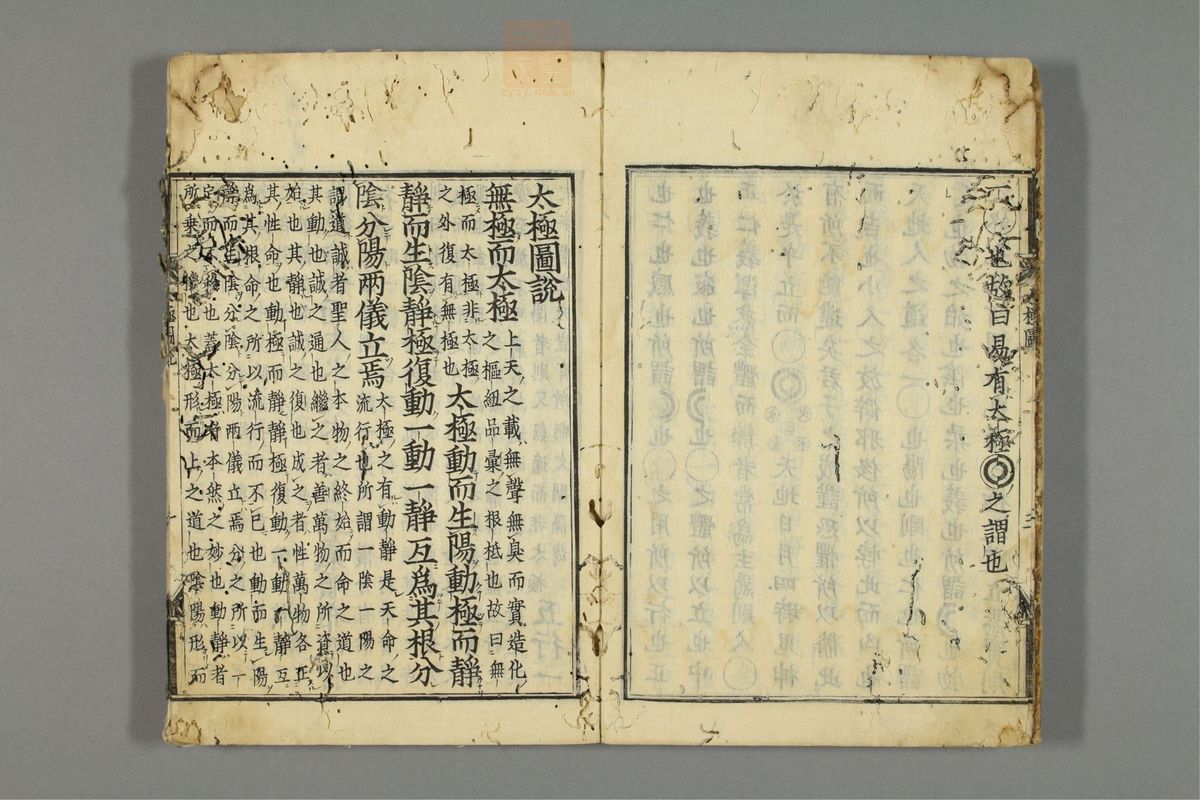 也故曰易有太極◎之謂也
極圖
太極圖說
無極而太極
上天之載無聲無臭而實造化
之樞紐品彙之根柢也故曰無
極而太極非太極
之外復有無極也
太極動而生陽動極而靜
靜而生陰靜極復動一動一靜互爲其根分
陰分陽兩儀立焉
太極之有動靜是天命之
流行也所謂一陰一陽之
謂道誠者聖人之本物之終始而命之道也
其動也誠之通也繼之者善萬物之所資以
始也其靜也誠之復也成之者性萬物各正
其性命也動極而靜靜極復動一動一靜互
爲其根命之所以流行而不已也動而生陽
靜而生陰分陰分陽兩儀立焉分之所以一
定而不移也蓋太極者本然之妙也動靜者
所乘之機也太極形而上之道也陰陽形而